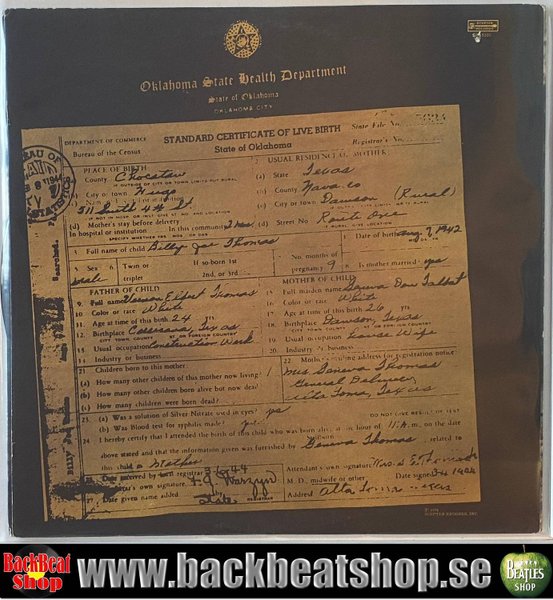 Oklahoma State Health Department
State of Oklahoma
OKLAHOMA CITY
DEPARTMENT OF COMMERCE
Bureau of the Census
STANDARD CERTIFICATE OF LIVE BIRTH
State of Oklahoma
State File No.
Registrar's No.
PLACE OF BIRTH
County Choctaw
IF OUTSIDE OF CITY OR TOWN LIMITS PUT RURAL
City or town Hugo
511 South 4th St.
(d) Mother's stay before delivery
In hospital or institution In this community 2 hrs
SPECIFY WHETHER YRS. MOS. OR DAYS
2. USUAL RESIDENCE OF MOTHER:
(a) State Texas
(b) County Navarro
(c) City or town Dawson (Rural)
(d) Street No. Route One
3. Full name of child Billy Joe Thomas
4. Date of birth Aug 7, 1942
5. Sex male
6. Twin or triplet
If so-born 1st 2nd, or 3rd
7. No. months of pregnancy 9
8. Is mother married yes
FATHER OF CHILD
9. Full name Vernon Elbert Thomas
10. Color or race White
11. Age at time of birth 24 yrs
12. Birthplace Corsicana, Texas
CITY TOWN, COUNTY ST OR FOREIGN COUNTRY
13. Usual occupation Construction Work
14. Industry or business
MOTHER OF CHILD
15. Full maiden name Geneva Talbat
16. Color or race White
17. Age at time of birth 26 yrs
18. Birthplace Dawson, Texas
CITY TOWN, COUNTY ST OR FOREIGN COUNTRY
19. Usual occupation House Wife
20. Industry or business
21. Children born to this mother
(a) How many other children of this mother now living
(b) How many other children born alive but now dead
(c) How many children were born dead
22. Mother's mailing address for registration notice:
Mrs Geneva Thomas
General Delivery
Alta Loma, Texas
23. (a) Was a solution of Silver Nitrate used in eyes? yes
(b) Was Blood test for syphilis made? yes
24. I hereby certify that I attended the birth of this child who was born alive at the hour of 11 A.m. on the date
above stated and that the information given was furnished by Geneva Thomas, related to
this child as Mother
Date received by local registrar
own signature
Date given name added
Attendant's own signature
M. D., midwife or other
Date signed
Address Alta Loma Texas
SCEPTER RECORDS, INC.
BackBeat Shop
www.backbeatshop.se
BEATLES SHOP